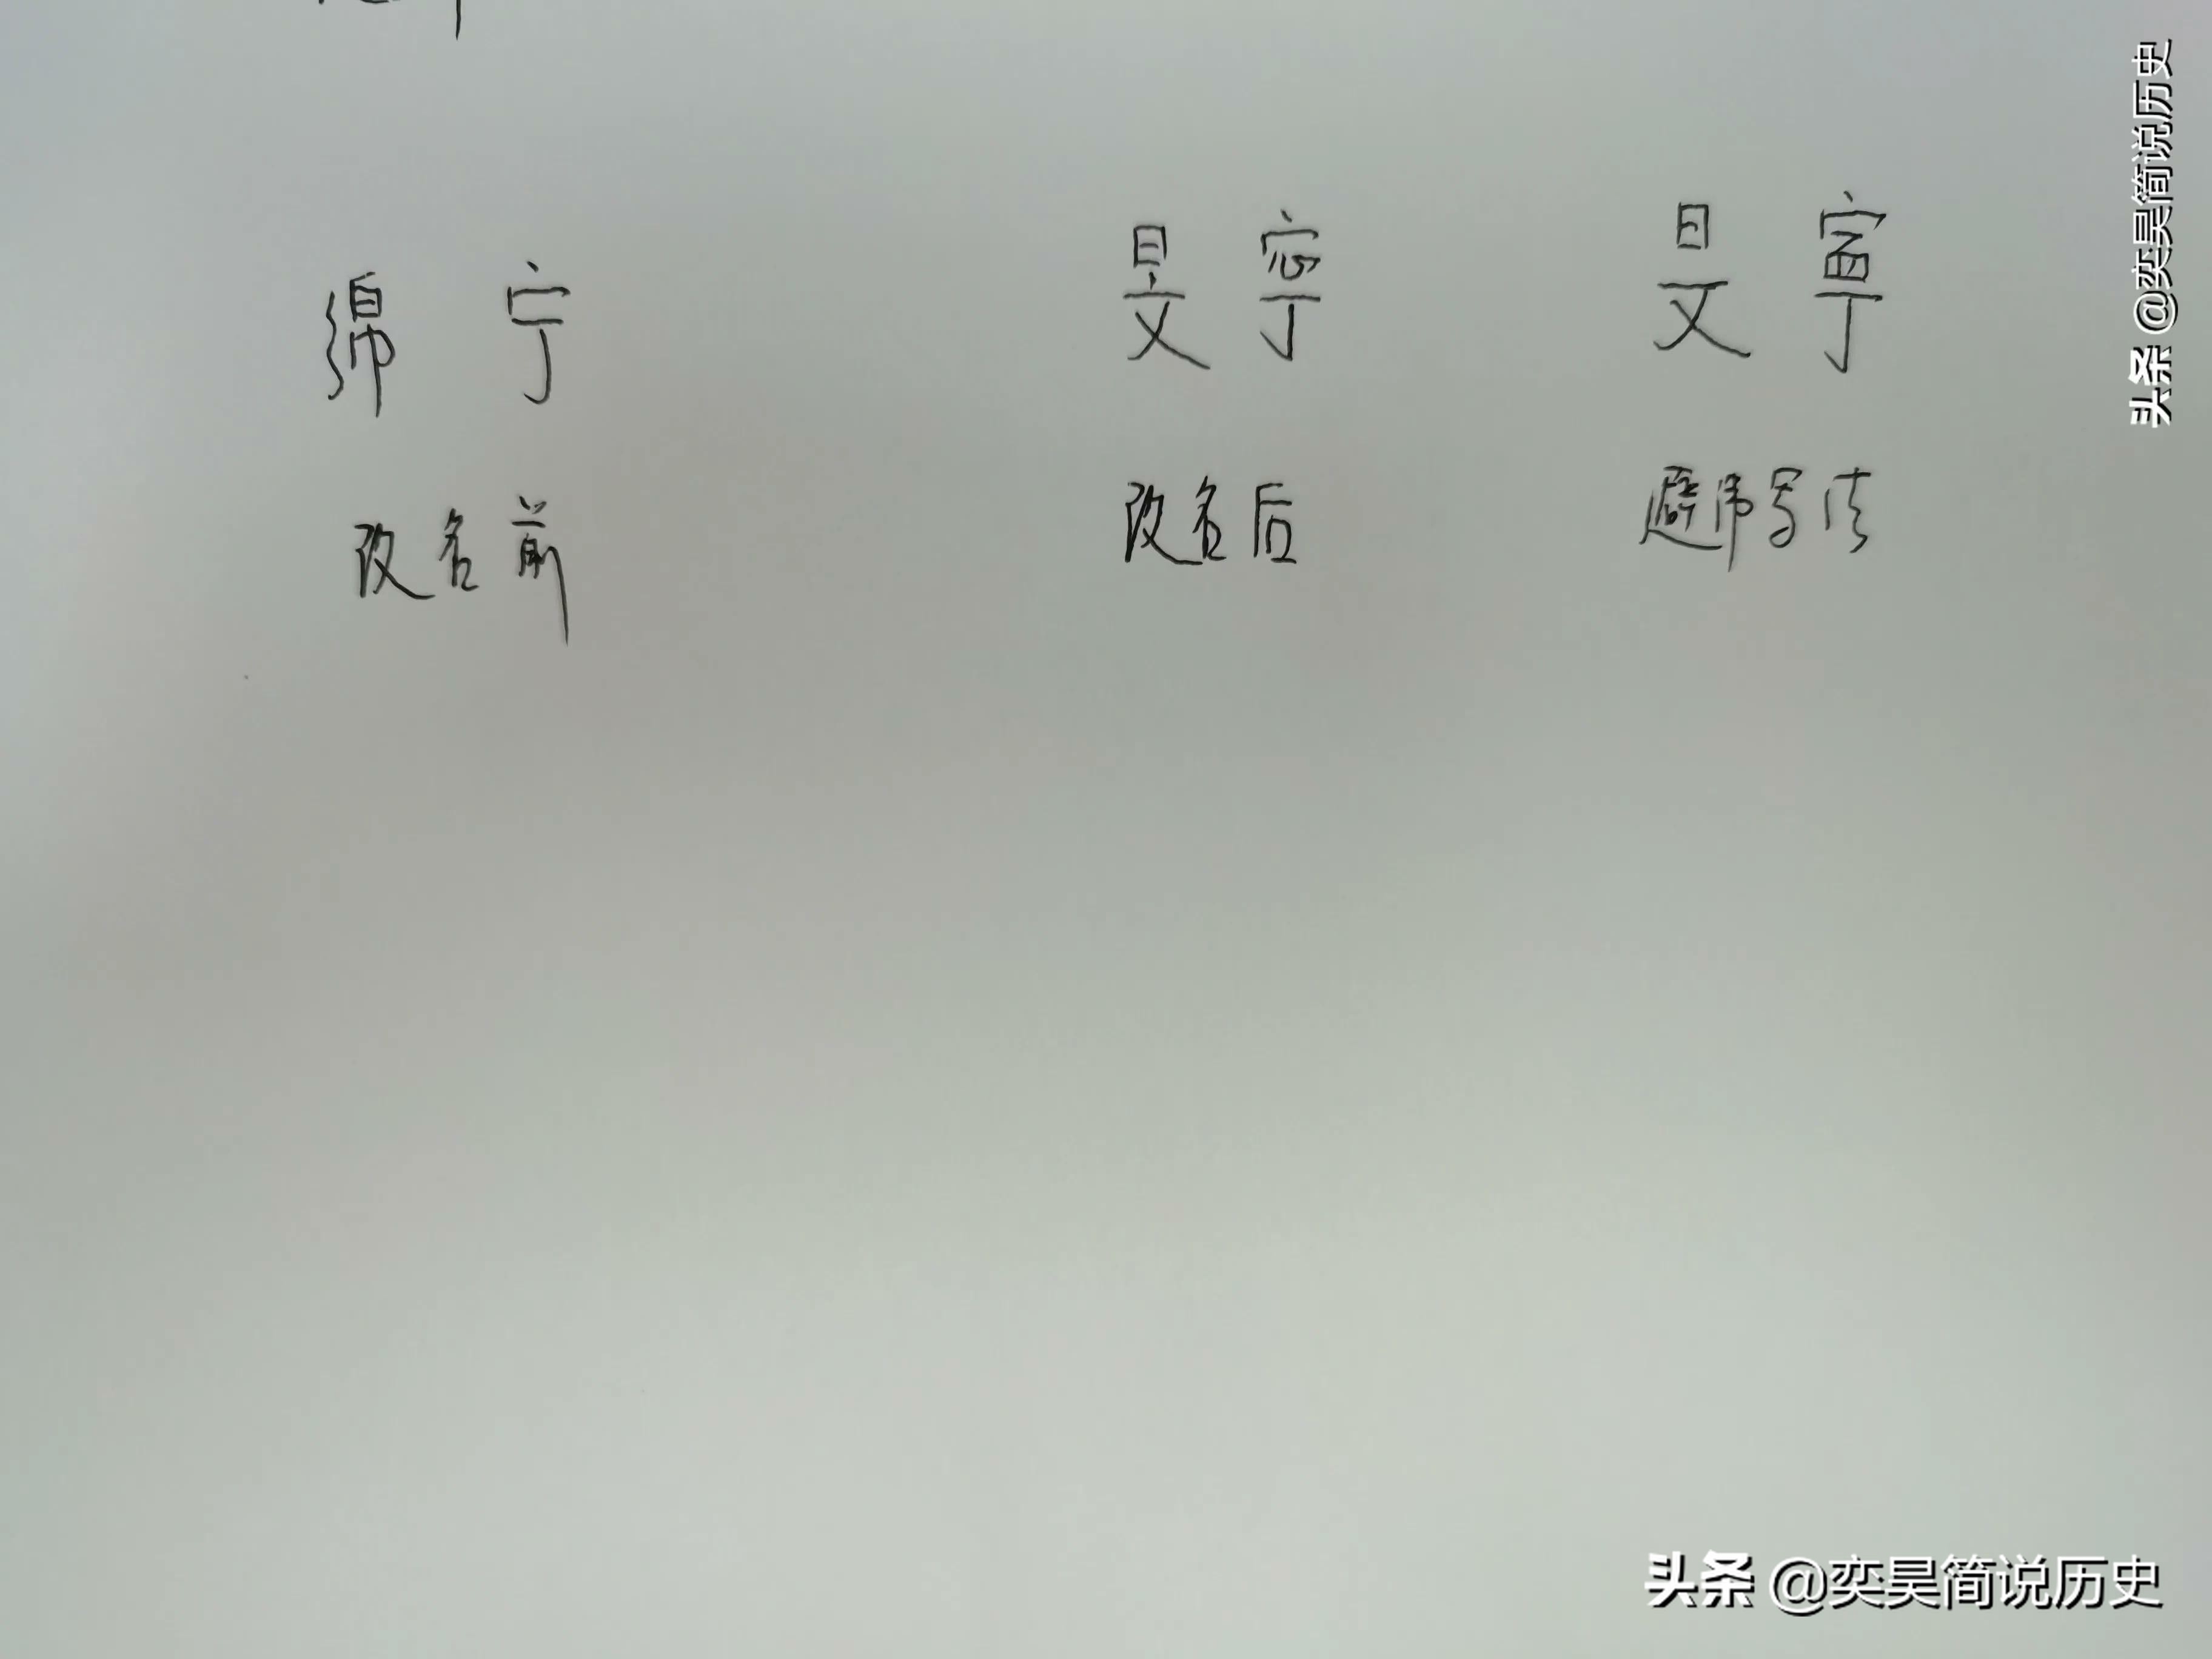 绵宁 旻寕 旻
改名前 改名后 避讳写法
头条 @奕昊简说历史
头条 @奕昊简说历史